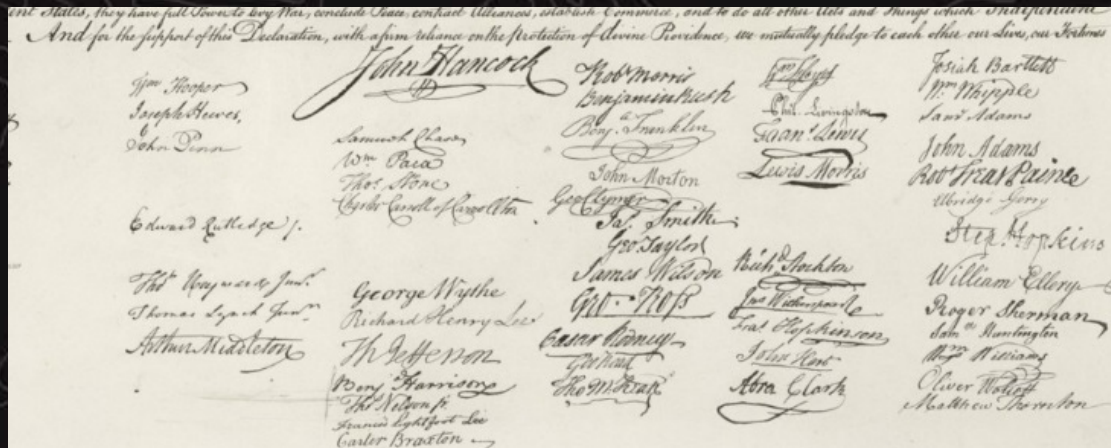 ent States, they have full Power to levy War, conclude Peace, contract Alliances, establish Commerce, and to do all other Acts and Things which Independent
And for the support of this Declaration, with a firm reliance on the protection of divine Providence, we mutually pledge to each other our Lives, our Fortunes
Wm Hooper
Joseph Hewes,
John Penn
Edward Rutledge /.
Thos Heyward Junr.
Thomas Lynch Junr.
Arthur Middleton
John Hancock
Samuel Chase
Wm Paca
Thos Stone
Charles Carroll of Carrollton
George Wythe
Richard Henry Lee
Th Jefferson
Benj Harrison
Thos Nelson jr.
Francis Lightfoot Lee
Carter Braxton
Robt Morris
Benjamin Rush
Benj. Franklin
John Morton
Geo Clymer
Jas. Smith.
Geo. Taylor
James Wilson
Geo. Ross
Caesar Rodney
Geo Read
Tho M:Kean
Wm Floyd
Phil. Livingston
Frans. Lewis
Lewis Morris
Richd. Stockton
Jno Witherspoon
Fras. Hopkinson
John Hart
Abra Clark
Josiah Bartlett
Wm. Whipple
Saml Adams
John Adams
Robt Treat Paine
Elbridge Gerry
Step. Hopkins
William Ellery
Roger Sherman
Saml Huntington
Wm Williams
Oliver Wolcott
Matthew Thornton